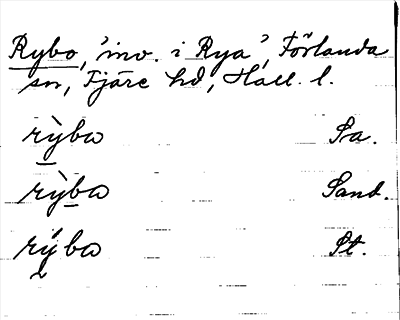 Rybo, 'inv. i Rya', Förlanda
sn, Fjäre hd, Hall. l.
rỳba Sa.
rỳba Sand.
rýba St.